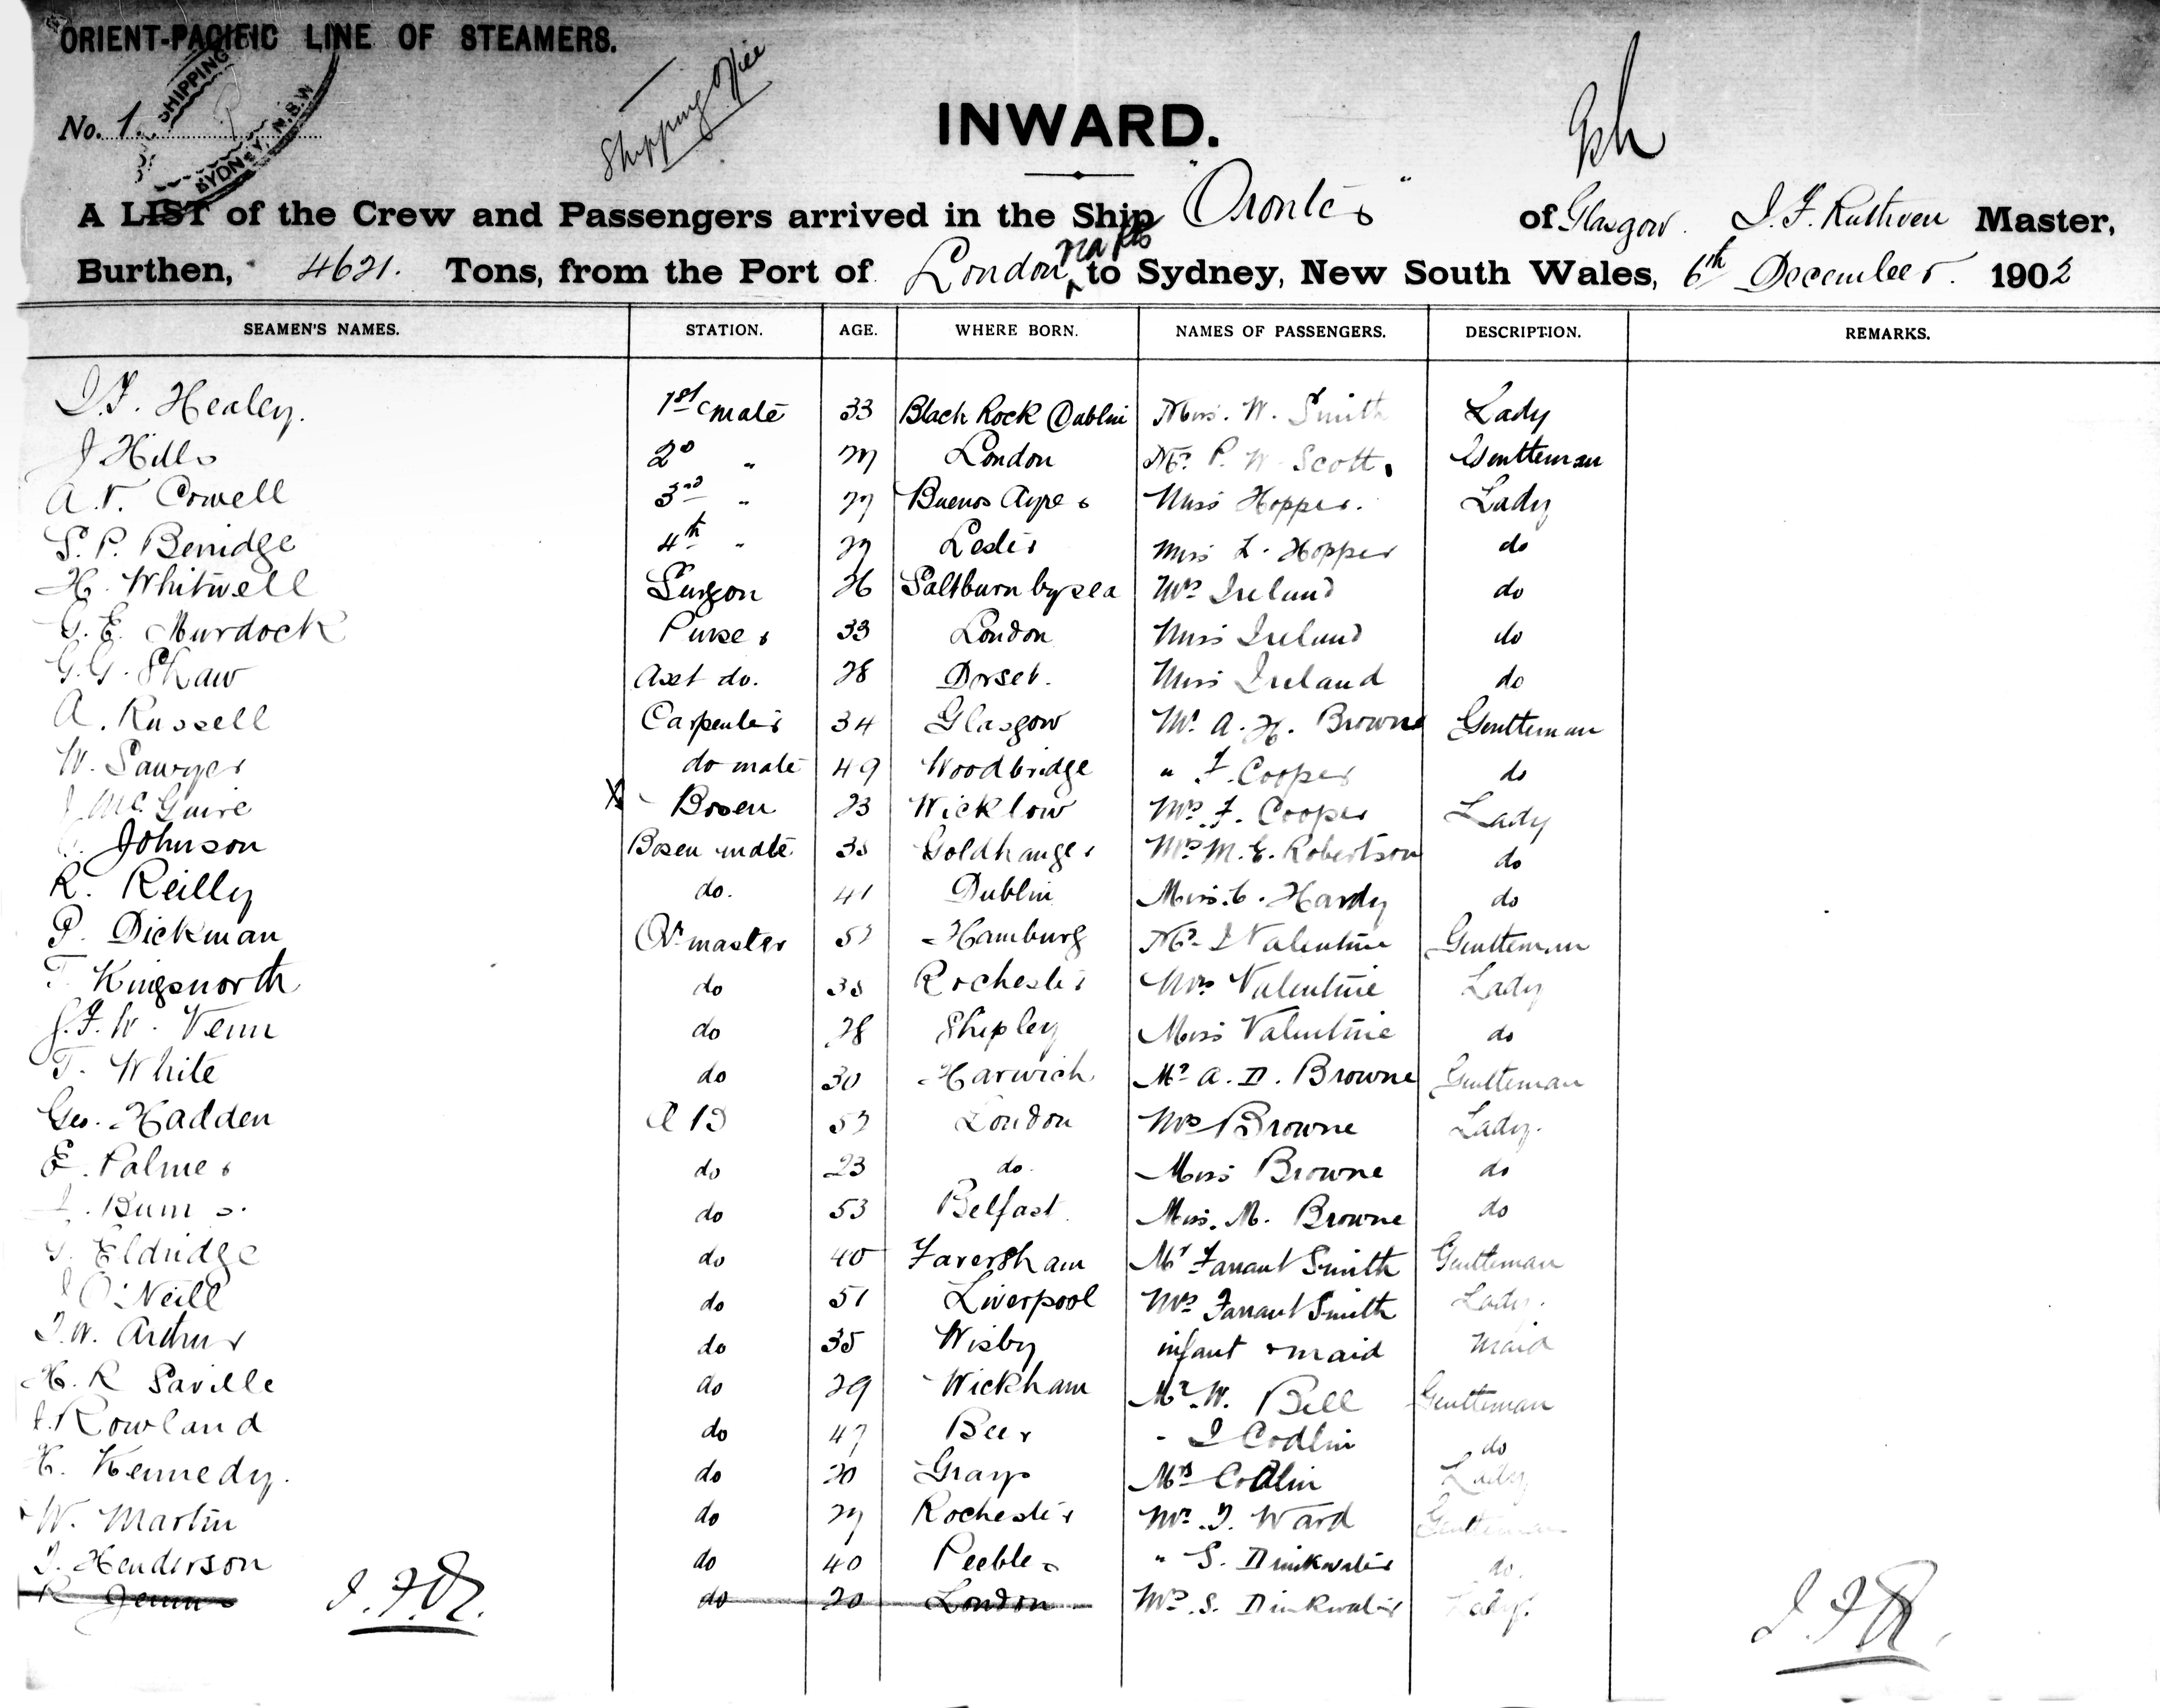 ORIENT-PACIFIC LINE OF STEAMERS.
SHIPPING
SYDNEY, N.S.W
No. 1.
Shipping Office
INWARD.
A LIST of the Crew and Passengers arrived in the Ship "Orontes" of Glasgow. J. F. Ruthven Master,
Burthen, 4621. Tons, from the Port of London to Sydney, New South Wales, 6th December. 1902
SEAMEN'S NAMES. STATION. AGE. WHERE BORN. NAMES OF PASSENGERS. DESCRIPTION. REMARKS.
J. F. Healey. 1st mate 33 Black Rock Dublin Miss. W. Smith Lady
J Hills 2D " 27 London Mr P. W Scott. Gentleman
A. V. Cowell 3rd " 27 Buenos Ayres Miss Hopper. Lady
S. P. Berridge 4th " 27 Miss L. Hopper do
H. Whitwell Surgon 26 Saltburn by sea Mrs Ireland do
G. E. Murdock Purser 33 London Miss Ireland do
G. G. Shaw Asst do. 28 Dorset. Miss Ireland do
A. Russell Carpenter 34 Glasgow Mr A. H. Browne Gentleman
W. Sawyer do mate 49 Woodbridge " F. Cooper do
J McGuire X Bosen 23 Wicklow Mrs F. Cooper Lady
Johnson Bosen mate 38 Goldhanger Mrs M. E. Robertson do
R. Reilly do. 41 Dublin Miss. C. Hardy do
P. Dickman Qr master 52 Hamburg Mr J Valentine Gentleman
T Kingsnorth do 38 Rochester Mrs Valentine Lady
J. F. W. Venn do 28 Shipley Miss Valentine do
T. White do 30 Harwich Mr A. D. Browne Gentleman
Geo. Hadden A B 52 London Mrs Browne Lady.
E. Palmer do 23 do. Miss Browne do
J. Burns. do 53 Belfast Miss. M. Browne do
G. Eldridge do 40 Faversham Mr Farrant Smith Gentleman
J O'Neill do 51 Liverpool Mrs Farrant Smith Lady.
J. W. Arthur do 35 Wisby infant & maid Maid
H. R Saville do 29 Wickham Mr. W. Bell Gentleman
J. Rowland do 47 Beer " J Codlin do
H. Kennedy. do 20 Grays Mrs Codlin Lady
W. Martin do 27 Rochester Mr. J. Ward Gentleman
J. Henderson do 40 Peebles " S. Drinkwater do.
R Jenns do 20 London Mrs. S. Drinkwater Lady.
J. F. R. J. F. R.